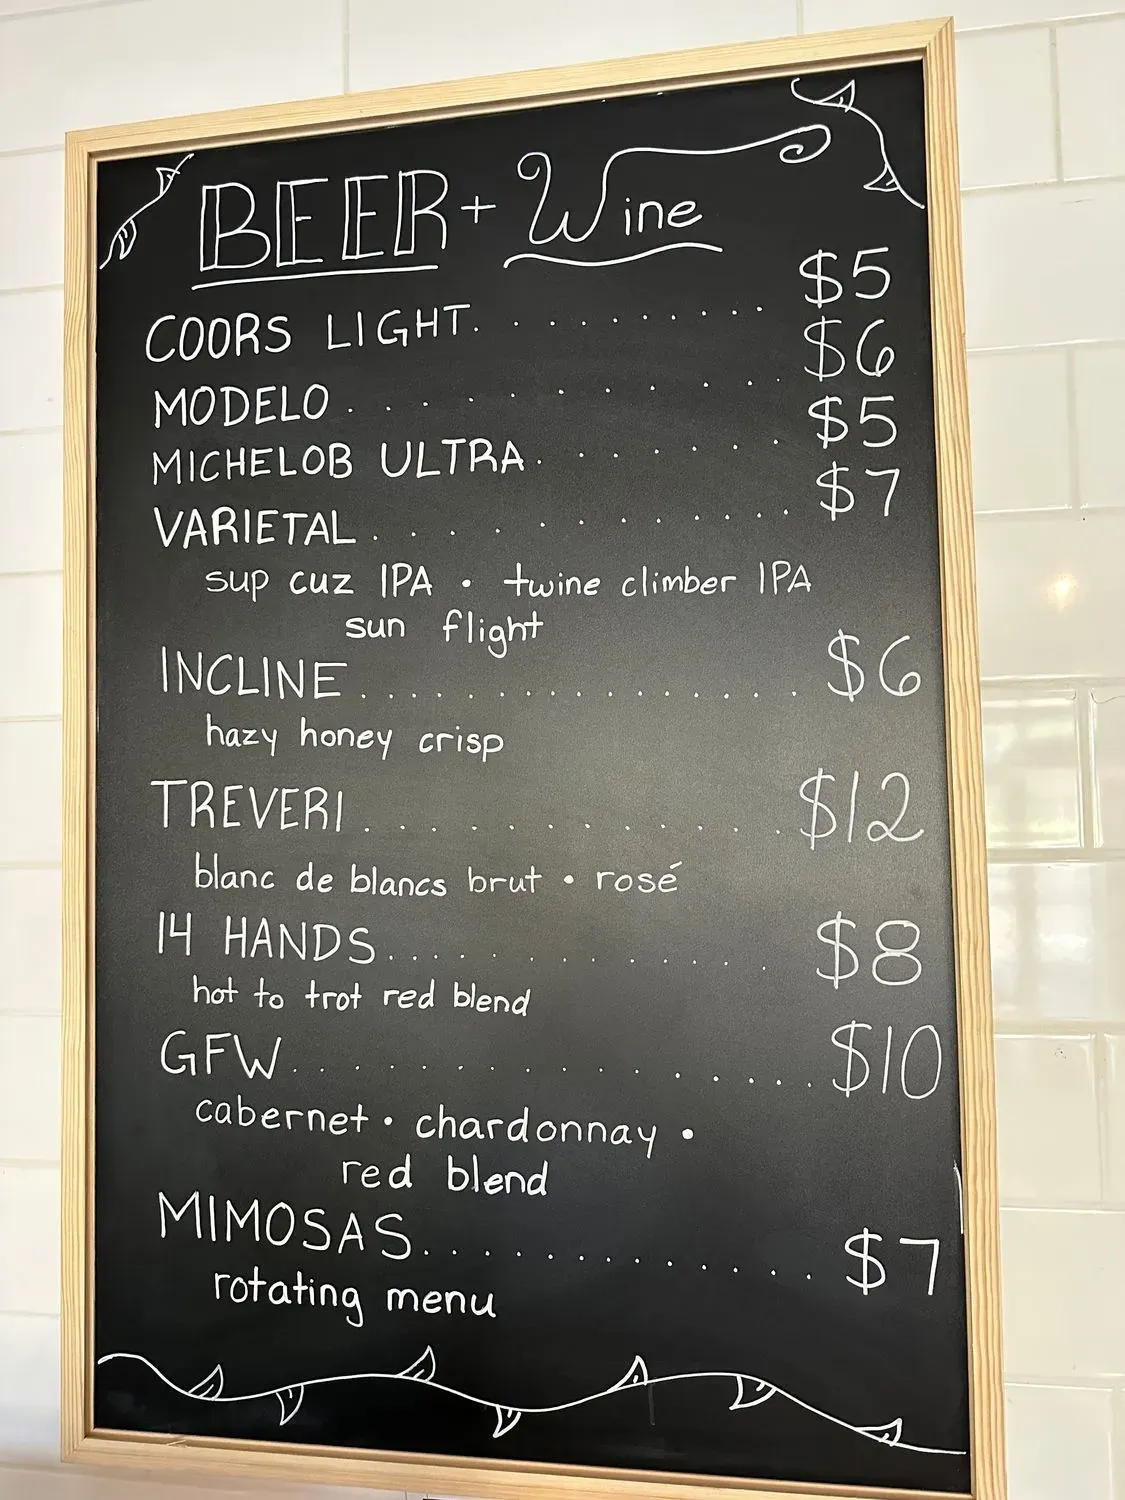 BEER + Wine
COORS LIGHT. . . . . . . . . . . $5
MODELO . . . . . . . . . . $6
MICHELOB ULTRA. . . . . . . $5
VARIETAL . . . . . . . . . . . . $7
sup cuz IPA • twine climber IPA
sun flight
INCLINE . . . . . . . . . . . . . . . . . $6
hazy honey crisp
TREVERI . . . . . . . . . . . . . $12
blanc de blancs brut • rosé
14 HANDS. . . . . . . . . . . . . . $8
hot to trot red blend
GFW. . . . . . . . . . . . . . . . . . $10
cabernet • chardonnay •
red blend
MIMOSAS. . . . . . . . . . . . . . $7
rotating menu